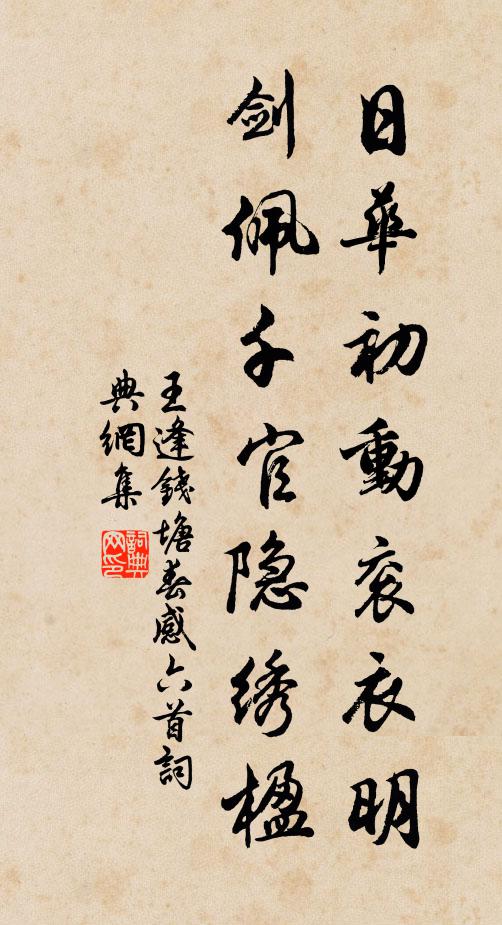 日華初動衮衣明
剑佩千官隐绣楹
王逢錢塘春感六首詞
典網集
詞典网印